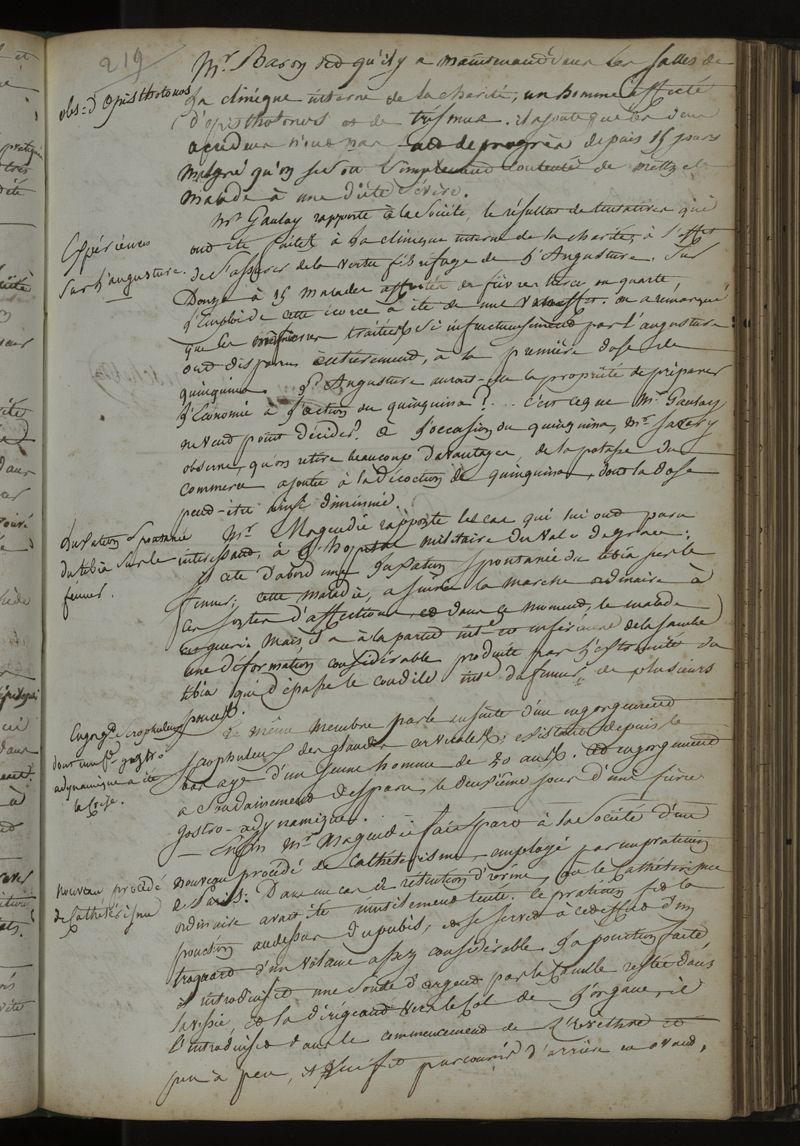 219
Mr. Baron dit qu'il y a maintenant dans les salles de
obs.on d'Opisthotonos
la clinique interne de la charité, un homme affecté
d'opisthotonos et de trismus. il ajoute que ces deux
malgré qu'on se soit simplement contenté de mettre le
malade à une diète sévère.
Expériences
sur l'angusture.
Mr. Gaulay rapporte à la Société, le résultat de tentatives qui
ont été faites à la clinique interne de la charité, à l'effet
de s'assurer de la vertu fébrifuge de l'Angusture. Sur
Douze à 15 malades affectés de fièvres tierce ou quarte,
l'Emploi de cette écorce a été de nul effet. on a remarqué
que les traitées si infructueusement par l'angusture
ont disparu entièrement, à la première dose de
quinquina. L'Angusture aurait-elle la propriété de préparer
l'Economie à l'action du quinquina? .. c'est ce que Mr. Gaulay
ne veut point décider. A l'occasion du quinquina, Mr.
observe, qu'on retire beaucoup d'avantages, de la potasse du
commerce ajoutée à la décoction de quinquina, dont la dose
peut-être ainsi diminuée.
Luxation Spontanée
du tibia sur le
fémur.
Mr. Magendie rapporte les cas qui lui ont paru
intéressants, à l'hopital militaire du Val de grace:
il cite d'abord une Luxation Spontanée du tibia sur le
fémur; cette maladie, a suivi la marche ordinaire à
ces sortes d'affections, et dans ce moment, le malade
est guéri. Mais il a à la partie int.e et inférieure de la jambe
une déformation considérable produite par l'extrémité du
tibia qui dépasse le condile int.e du fémur, de plusieurs
pouces.
Engorg.t Scrophuleux
dont une f.e gastro
adynamique a été
la Crise.
Le même Membre parle ensuite d'un engorgement
scrophuleux des glandes cervicales; existant depuis le
bas age d'un jeune homme de 20 ans. Cet engorgement
a soudainement disparu, le deuxième jour d'une fièvre
gastro-adynamique.
Nouveau procédé
de Cathétérisme
Enfin Mr. Magendie fait part à la Société d'un
nouveau procédé de Cathétérisme employé par un praticien
de Paris: Dans un cas de rétention d'urine, où le Cathétérisme
ordinaire avait été inutilement tenté. le praticien fit la
ponction au dessus du pubis, et se servit à cet effet d'un
troquard d'un volume assez considérable. La ponction faite,
il introduisit une sonde d'argent par la Canulle restée dans
la vessie, et la dirigeant vers le Col de l'organe, il
l'introduisit dans le commencement de l'Urèthre et
peu à peu, il lui fit parcourir d'arrière en avant,